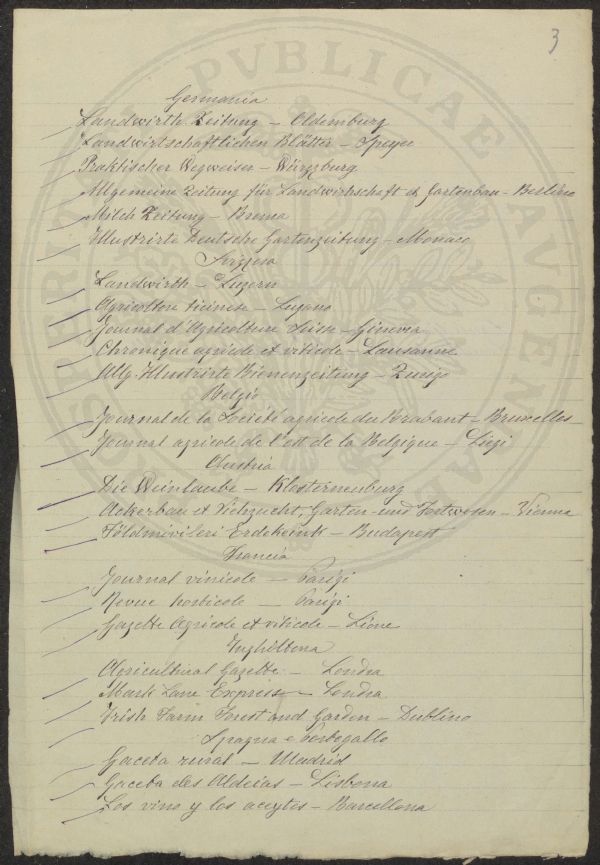 3
Germania
Landwirth. Zeitung – Oldemburg
Landwirtschaftlichen Blätter – Speyer
Praktischer Wegweiser – Würzburg
Allgemeine Zeitung für Landwirthschaft & Gartenbau – Berlino
Milch Zeitung – Brema
Illustrirte Deutsche Gartenzeitung – Monaco
Svizzera
Landwirth – Luzern
Agricoltore ticinese – Lugano
Journal d'Agricolture Suisse – Ginevra
Chronique agricole et viticole – Lausanne
Allg. Illustrirte Bienenzeitung – Zurigo
Belgio
Journal de la Société agricole du Brabant – Bruxelles
Journal agricole de l'est de la Belgique – Liegi
Austria
Die Weinlaube – Klosterneuburg
Ackerbau & Viehzucht, Garten- und Forstwesen – Vienna
Földmivilesi Erdekeink – Budapest
Francia
Journal vinicole – Parigi
Revue horticole – Parigi
Gazette Agricole et viticole – Lione
Inghilterra
Agricultural Gazette – Londra
Mark Lane Express – Londra
Irish Farm Forest and Garden – Dublino
Spagna e Portogallo
Gaceta rural – Madrid
Gaceta des Aldeias – Lisbona
Los vino y los aceytes – Barcellona
PVBLICAE